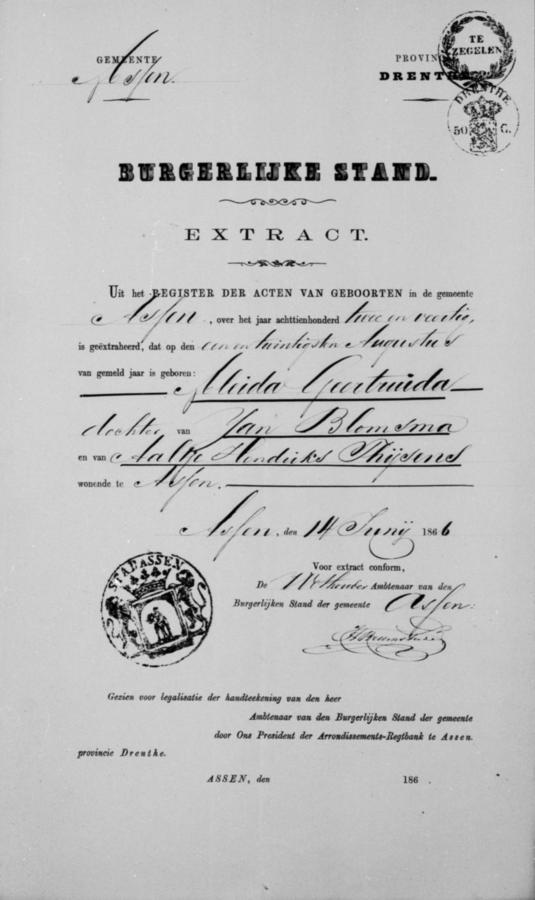 GEMEENTE
Assen.
PROVIN
DRENTHE
TE
ZEGELEN
DRENTHE
50 C.
BURGERLIJKE STAND.
EXTRACT.
Uit het REGISTER DER ACTEN VAN GEBOORTEN in de gemeente
Assen, over het jaar achttienhonderd twee en veertig,
is geëxtraheerd, dat op den een en twintigsten Augustus
van gemeld jaar is geboren:
Geertruida
dochter van Jan Blomsma
en van Aaltje Hendriks Thijsens
wonende te Assen.
Assen, den 14 Junij 1866
Voor extract conform,
De Wethouder Ambtenaar van den
Burgerlijken Stand der gemeente Assen.
STAD ASSEN
Gezien voor legalisatie der handteekening van den heer
Ambtenaar van den Burgerlijken Stand der gemeente
door Ons President der Arrondissements-Regtbank te Assen.
provincie Drenthe.
ASSEN, den 186 .